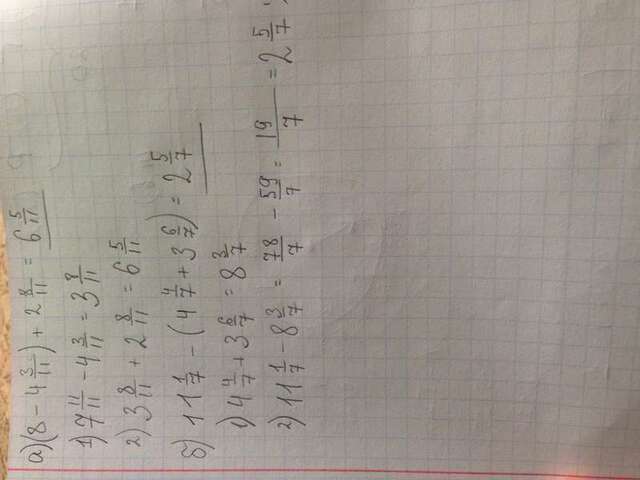 а) (8 - 4 3/11) + 2 8/11 = 6 5/11
1) 7 11/11 - 4 3/11 = 3 8/11
2) 3 8/11 + 2 8/11 = 6 5/11
б) 11 1/7 - (4 4/7 + 3 6/7) = 2 5/7
1) 4 4/7 + 3 6/7 = 8 3/7
2) 11 1/7 - 8 3/7 = 78/7 - 59/7 = 19/7 = 2 5/7